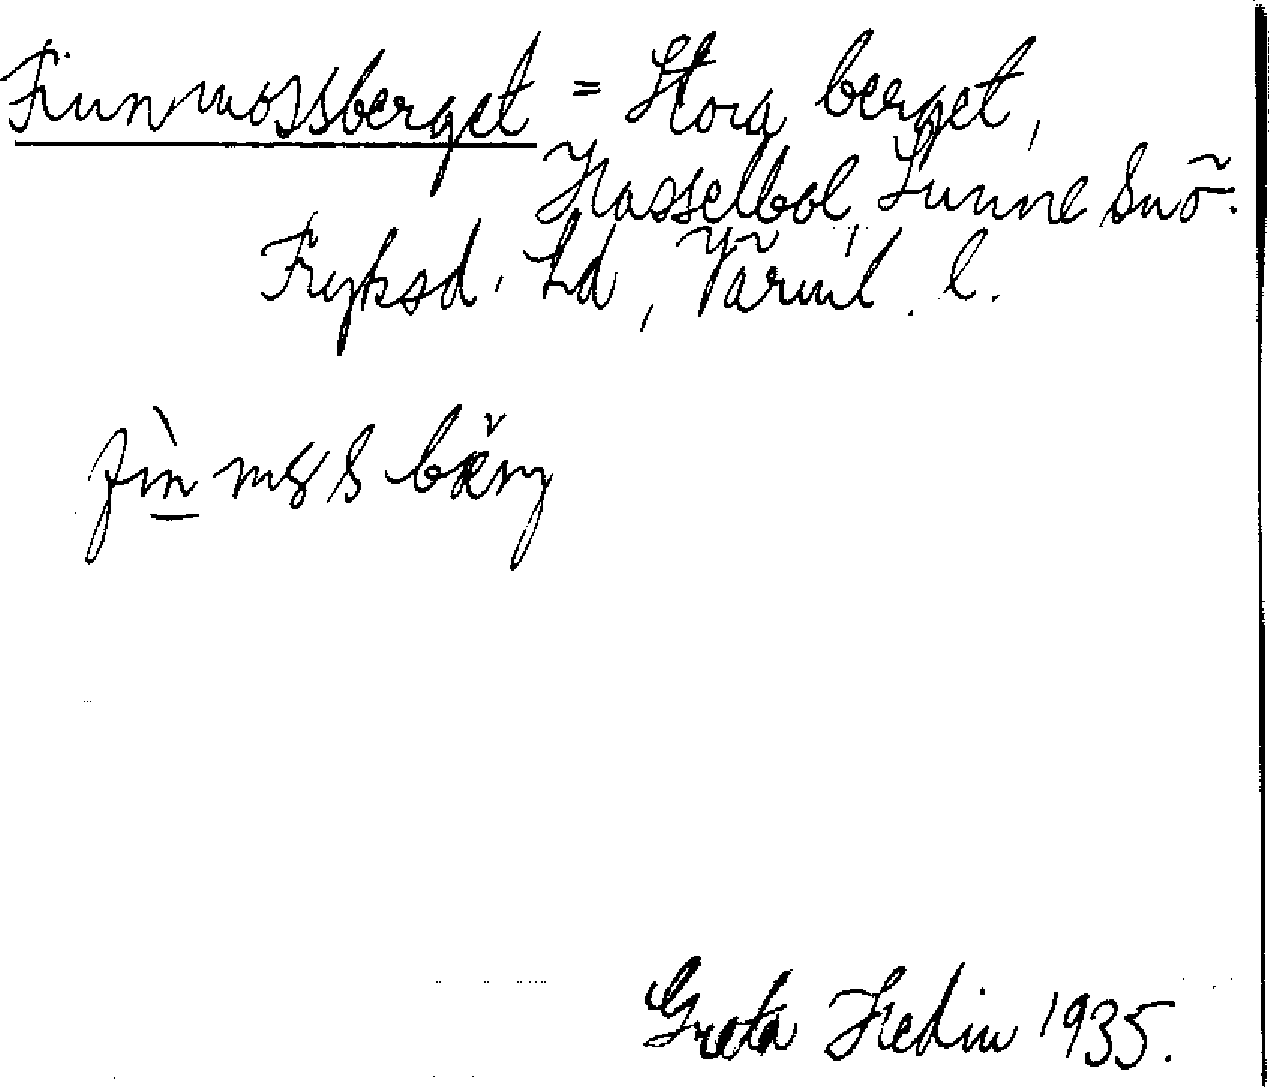 Finnmossberget = Stora berget,
Hasselbol, Sunne Snö.
Fryksd. hd, Värml. l.
Greta Hedin 1935.